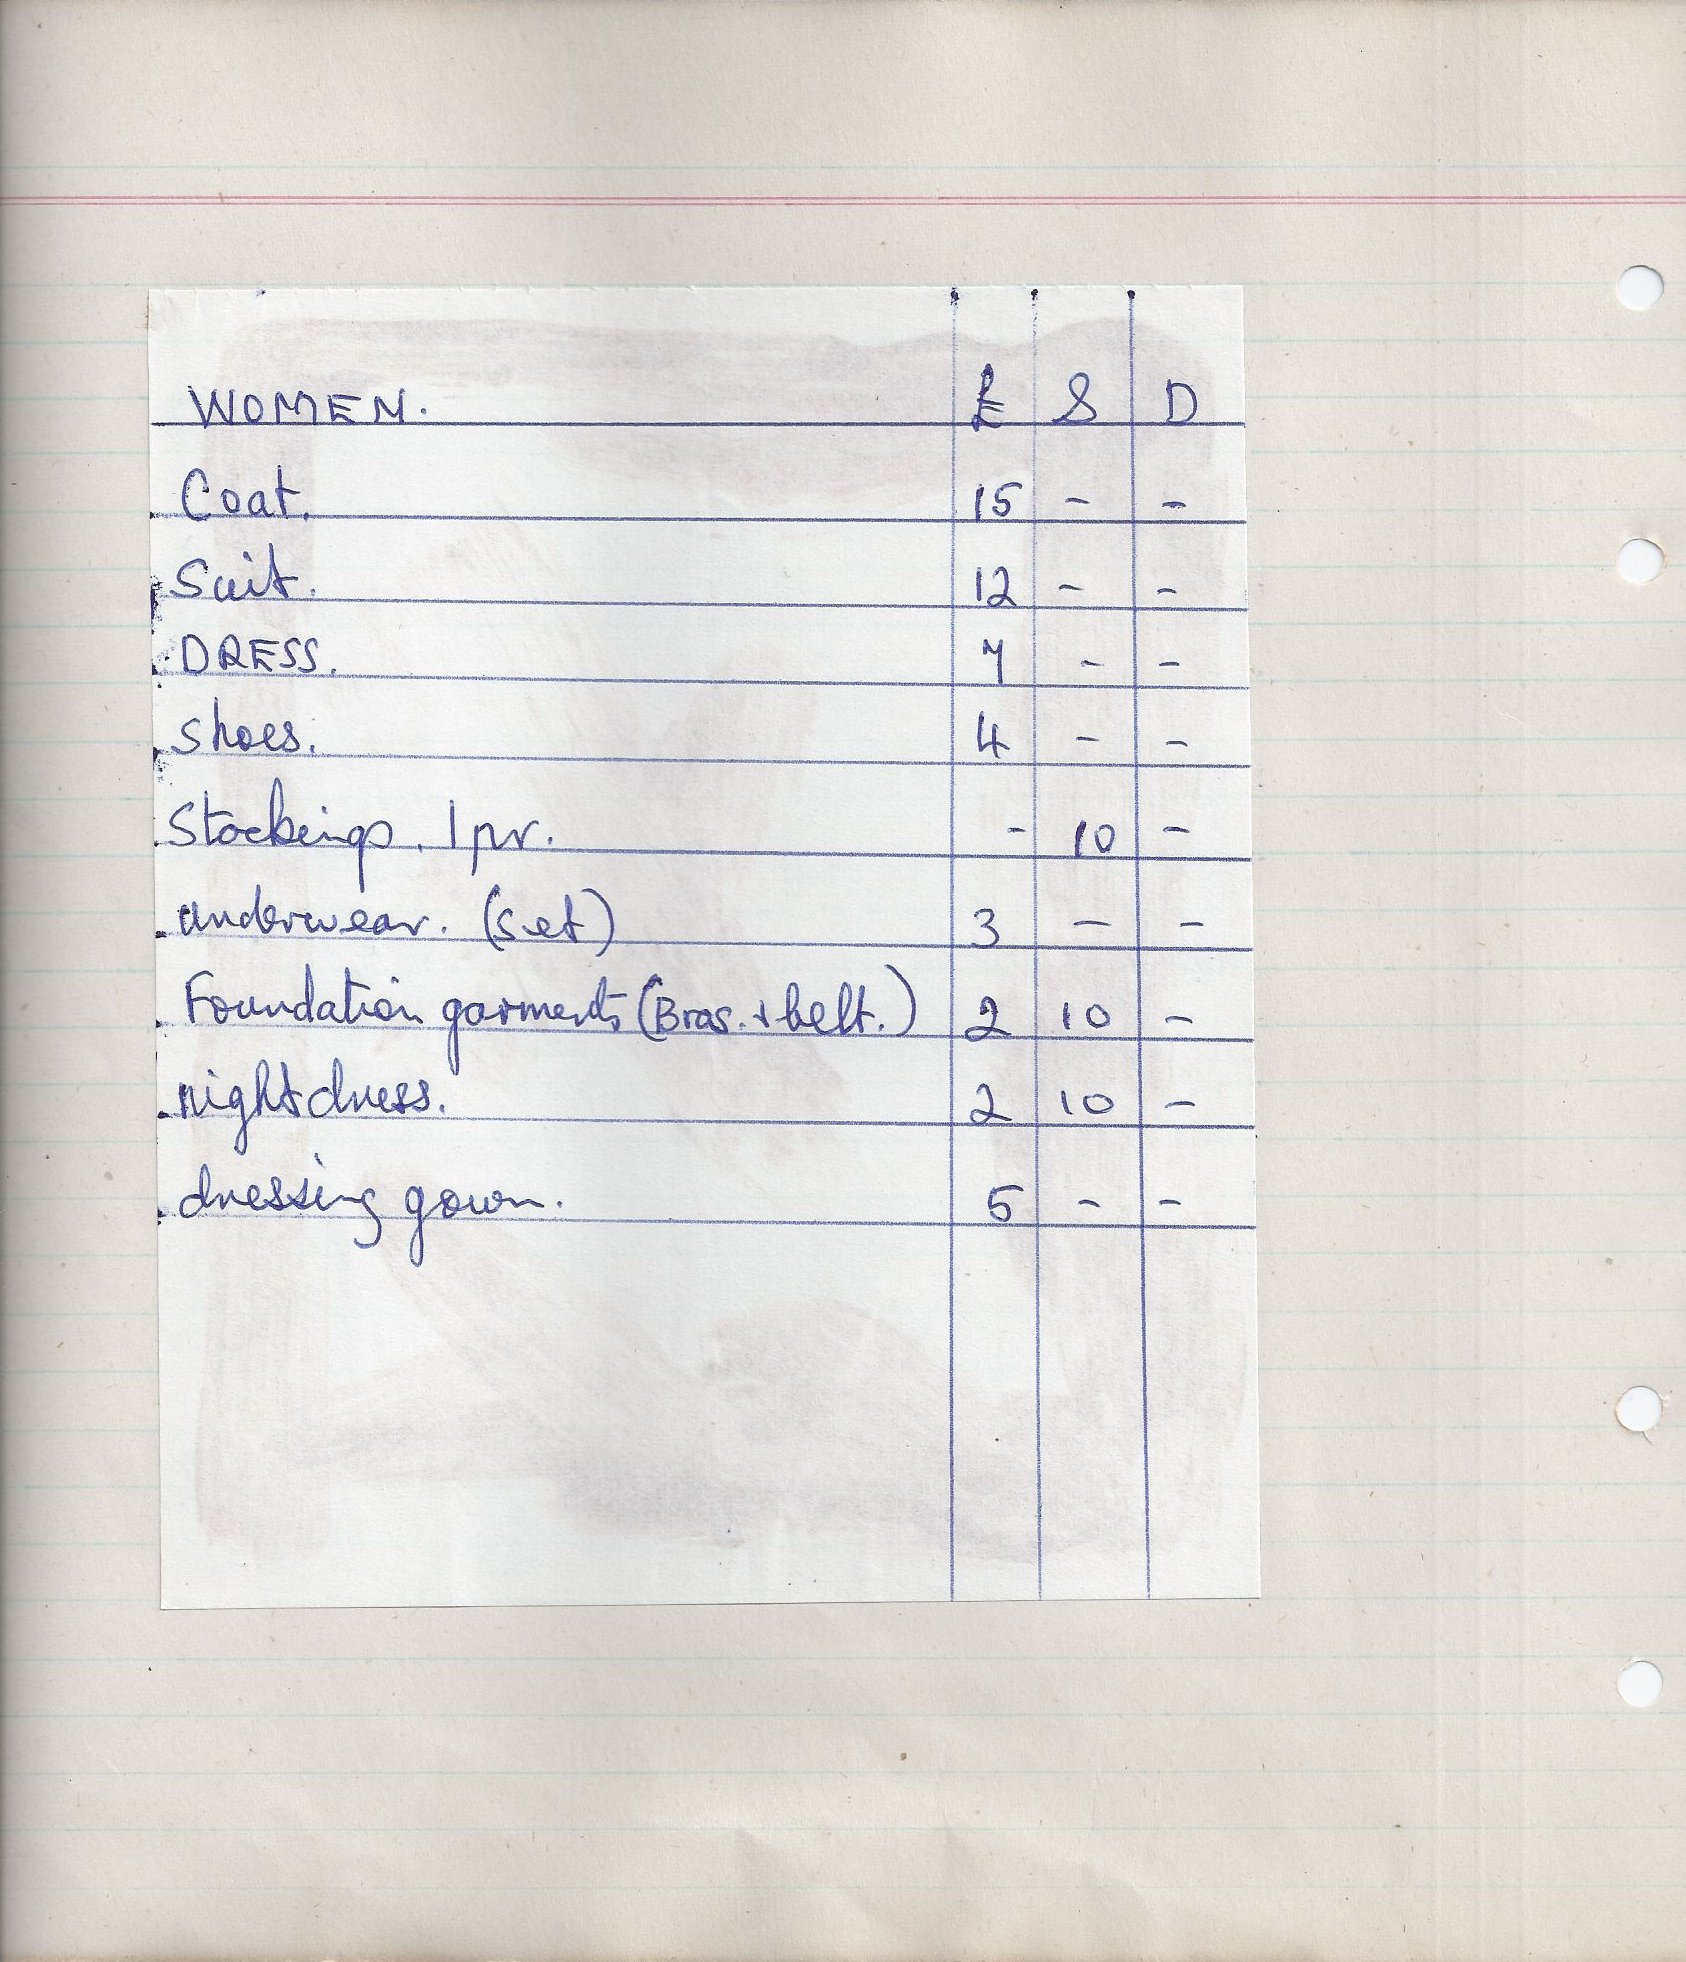 WOMEN. £ S D
Coat. 15 - -
Suit. 12 - -
DRESS. 7 - -
shoes. 4 - -
Stockings, 1 pr. - 10 -
underwear. (set) 3 - -
Foundation garments (Bras. + belt.) 2 10 -
nightdress. 2 10 -
dressing gown. 5 - -